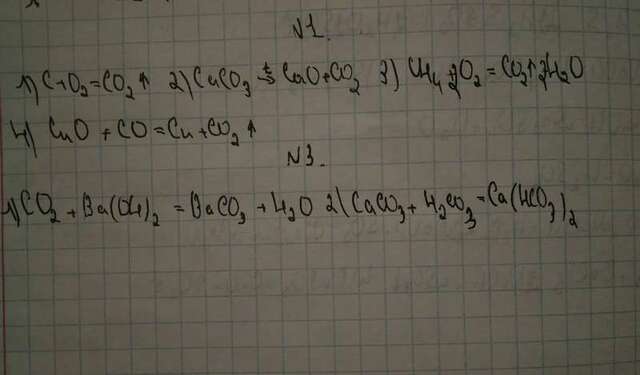 N1.
1) C+O₂=CO₂↑ 2) CaCO₃ →t CaO+CO₂ 3) CH₄+2O₂=CO₂↑+2H₂O
4) CuO + CO = Cu + CO₂↑
N3.
1) CO₂ + Ba(OH)₂ = BaCO₃ + H₂O 2) CaCO₃ + H₂CO₃ = Ca(HCO₃)₂